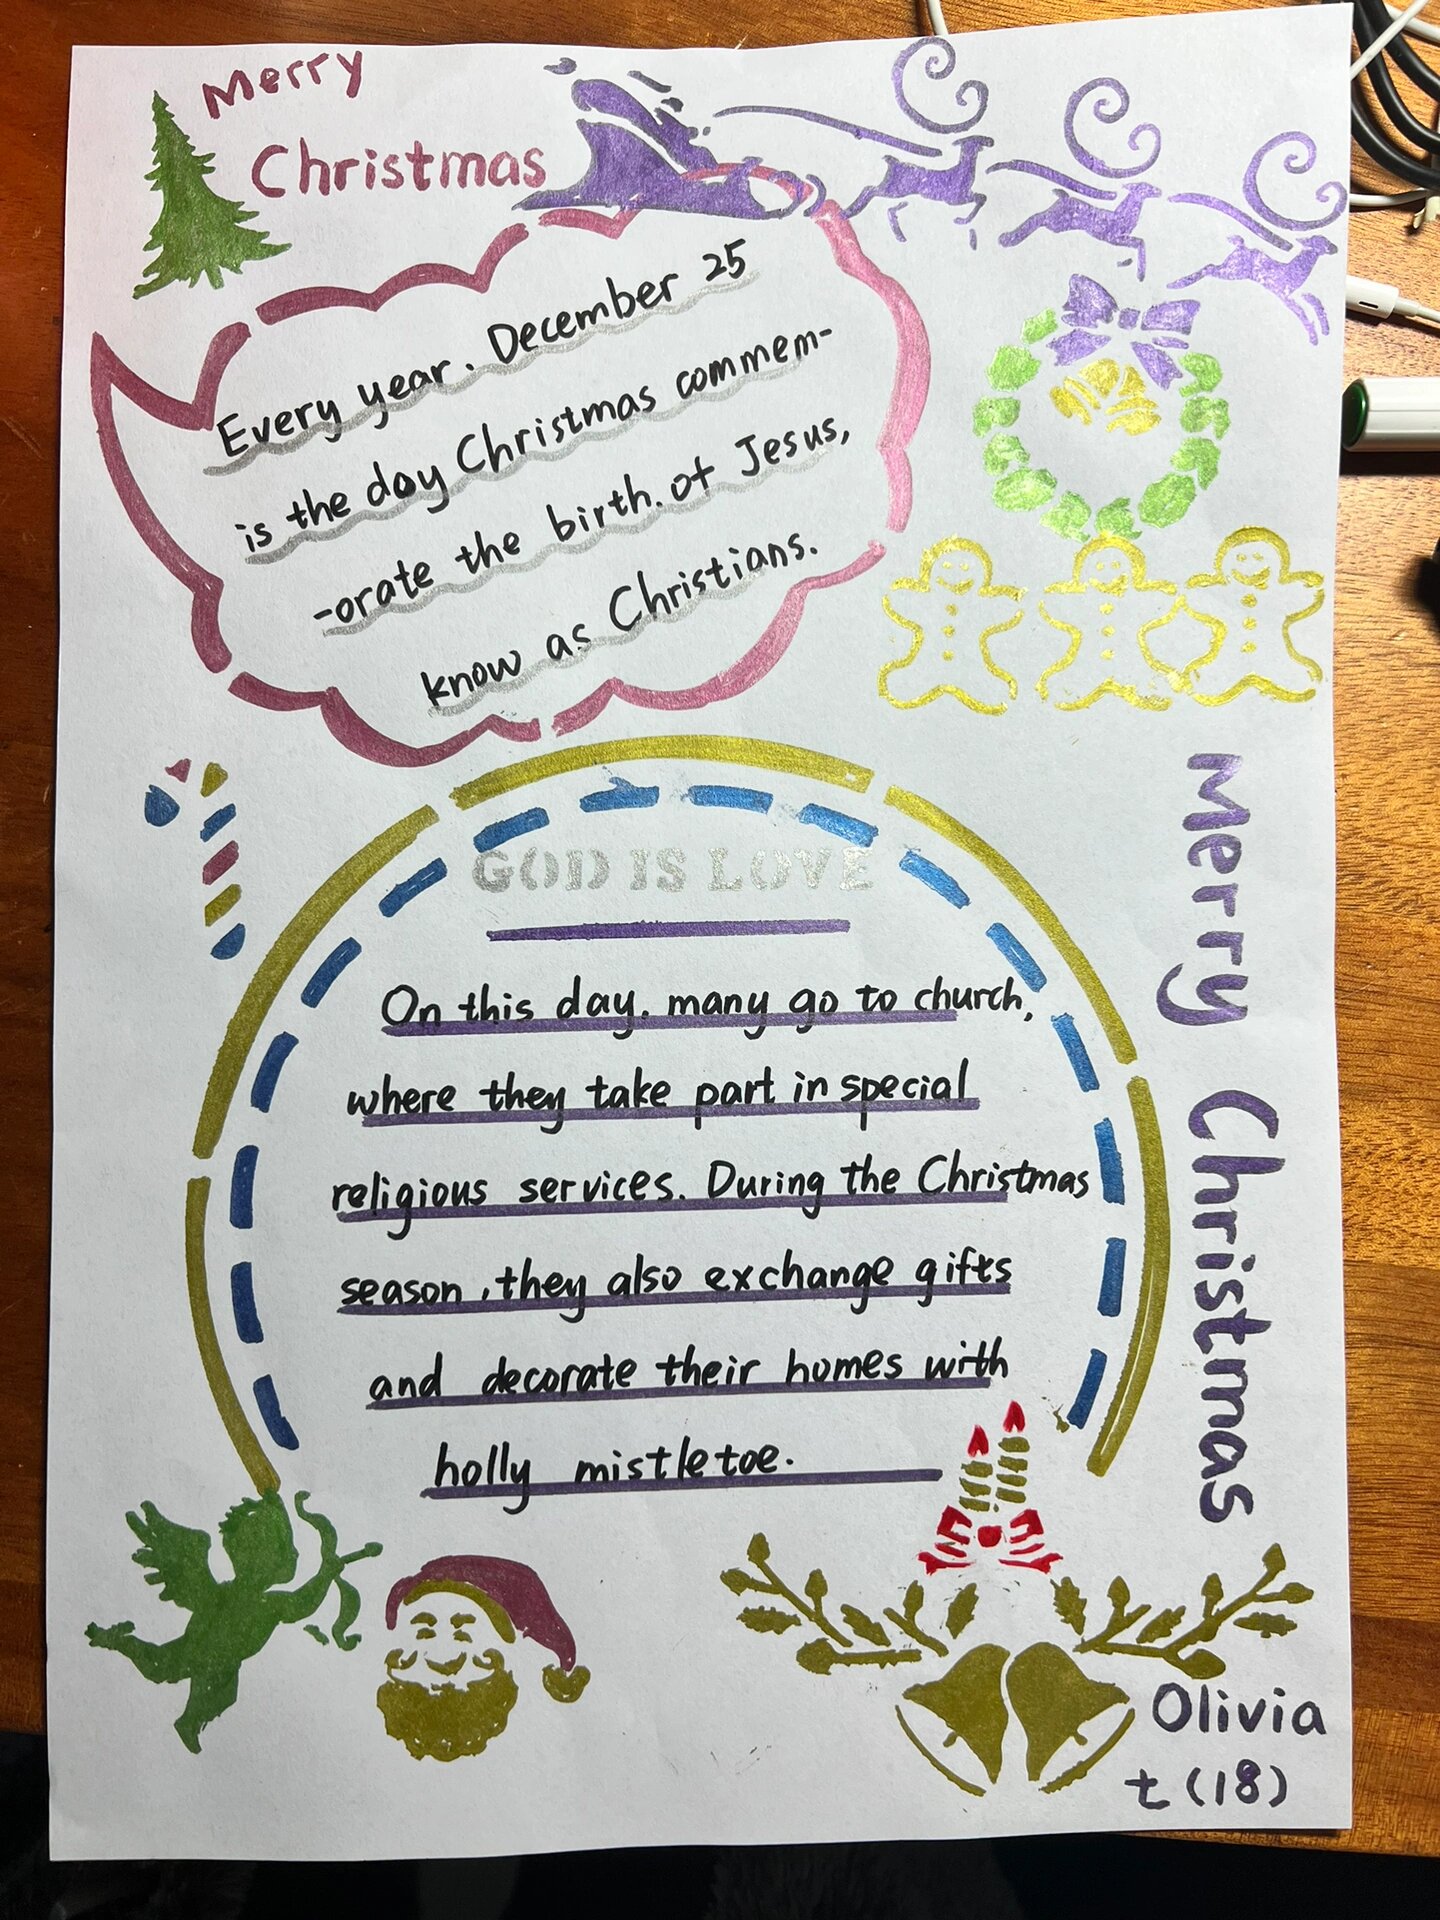 Merry
Christmas
Every year. December 25
is the day Christmas commem-
-orate the birth. of Jesus,
know as Christians.
GOD IS LOVE
On this day. many go to church,
where they take part in special
religious services. During the Christmas
season, they also exchange gifts
and decorate their homes with
holly mistletoe.
Merry Christmas
Olivia
七(18)